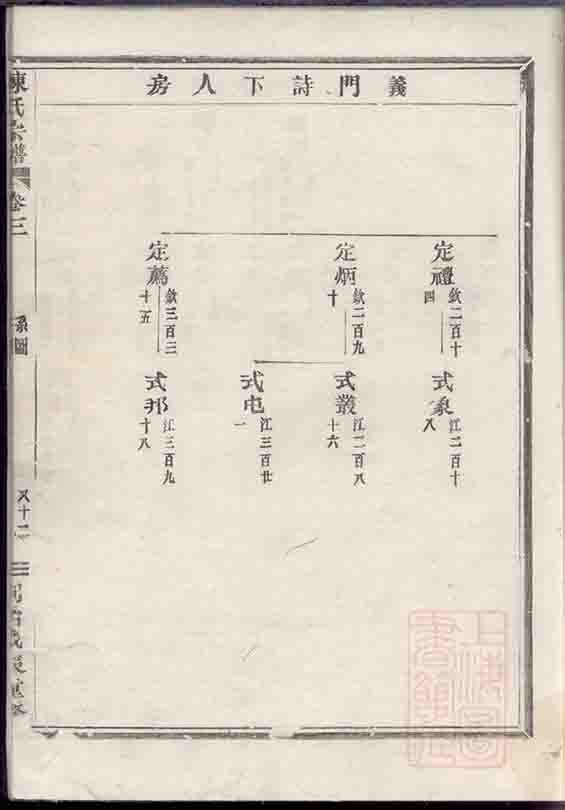 義門詩下人房
定禮
欽二百十
四
式象
江二百十
八
定炳
欽二百九
十
式叢
江二百八
十六
式屯
江三百廿
一
定薦
欽三百三
十五
式邦
江三百九
十八
陳氏宗譜
卷三
系圖
八十二
上海圖書館藏